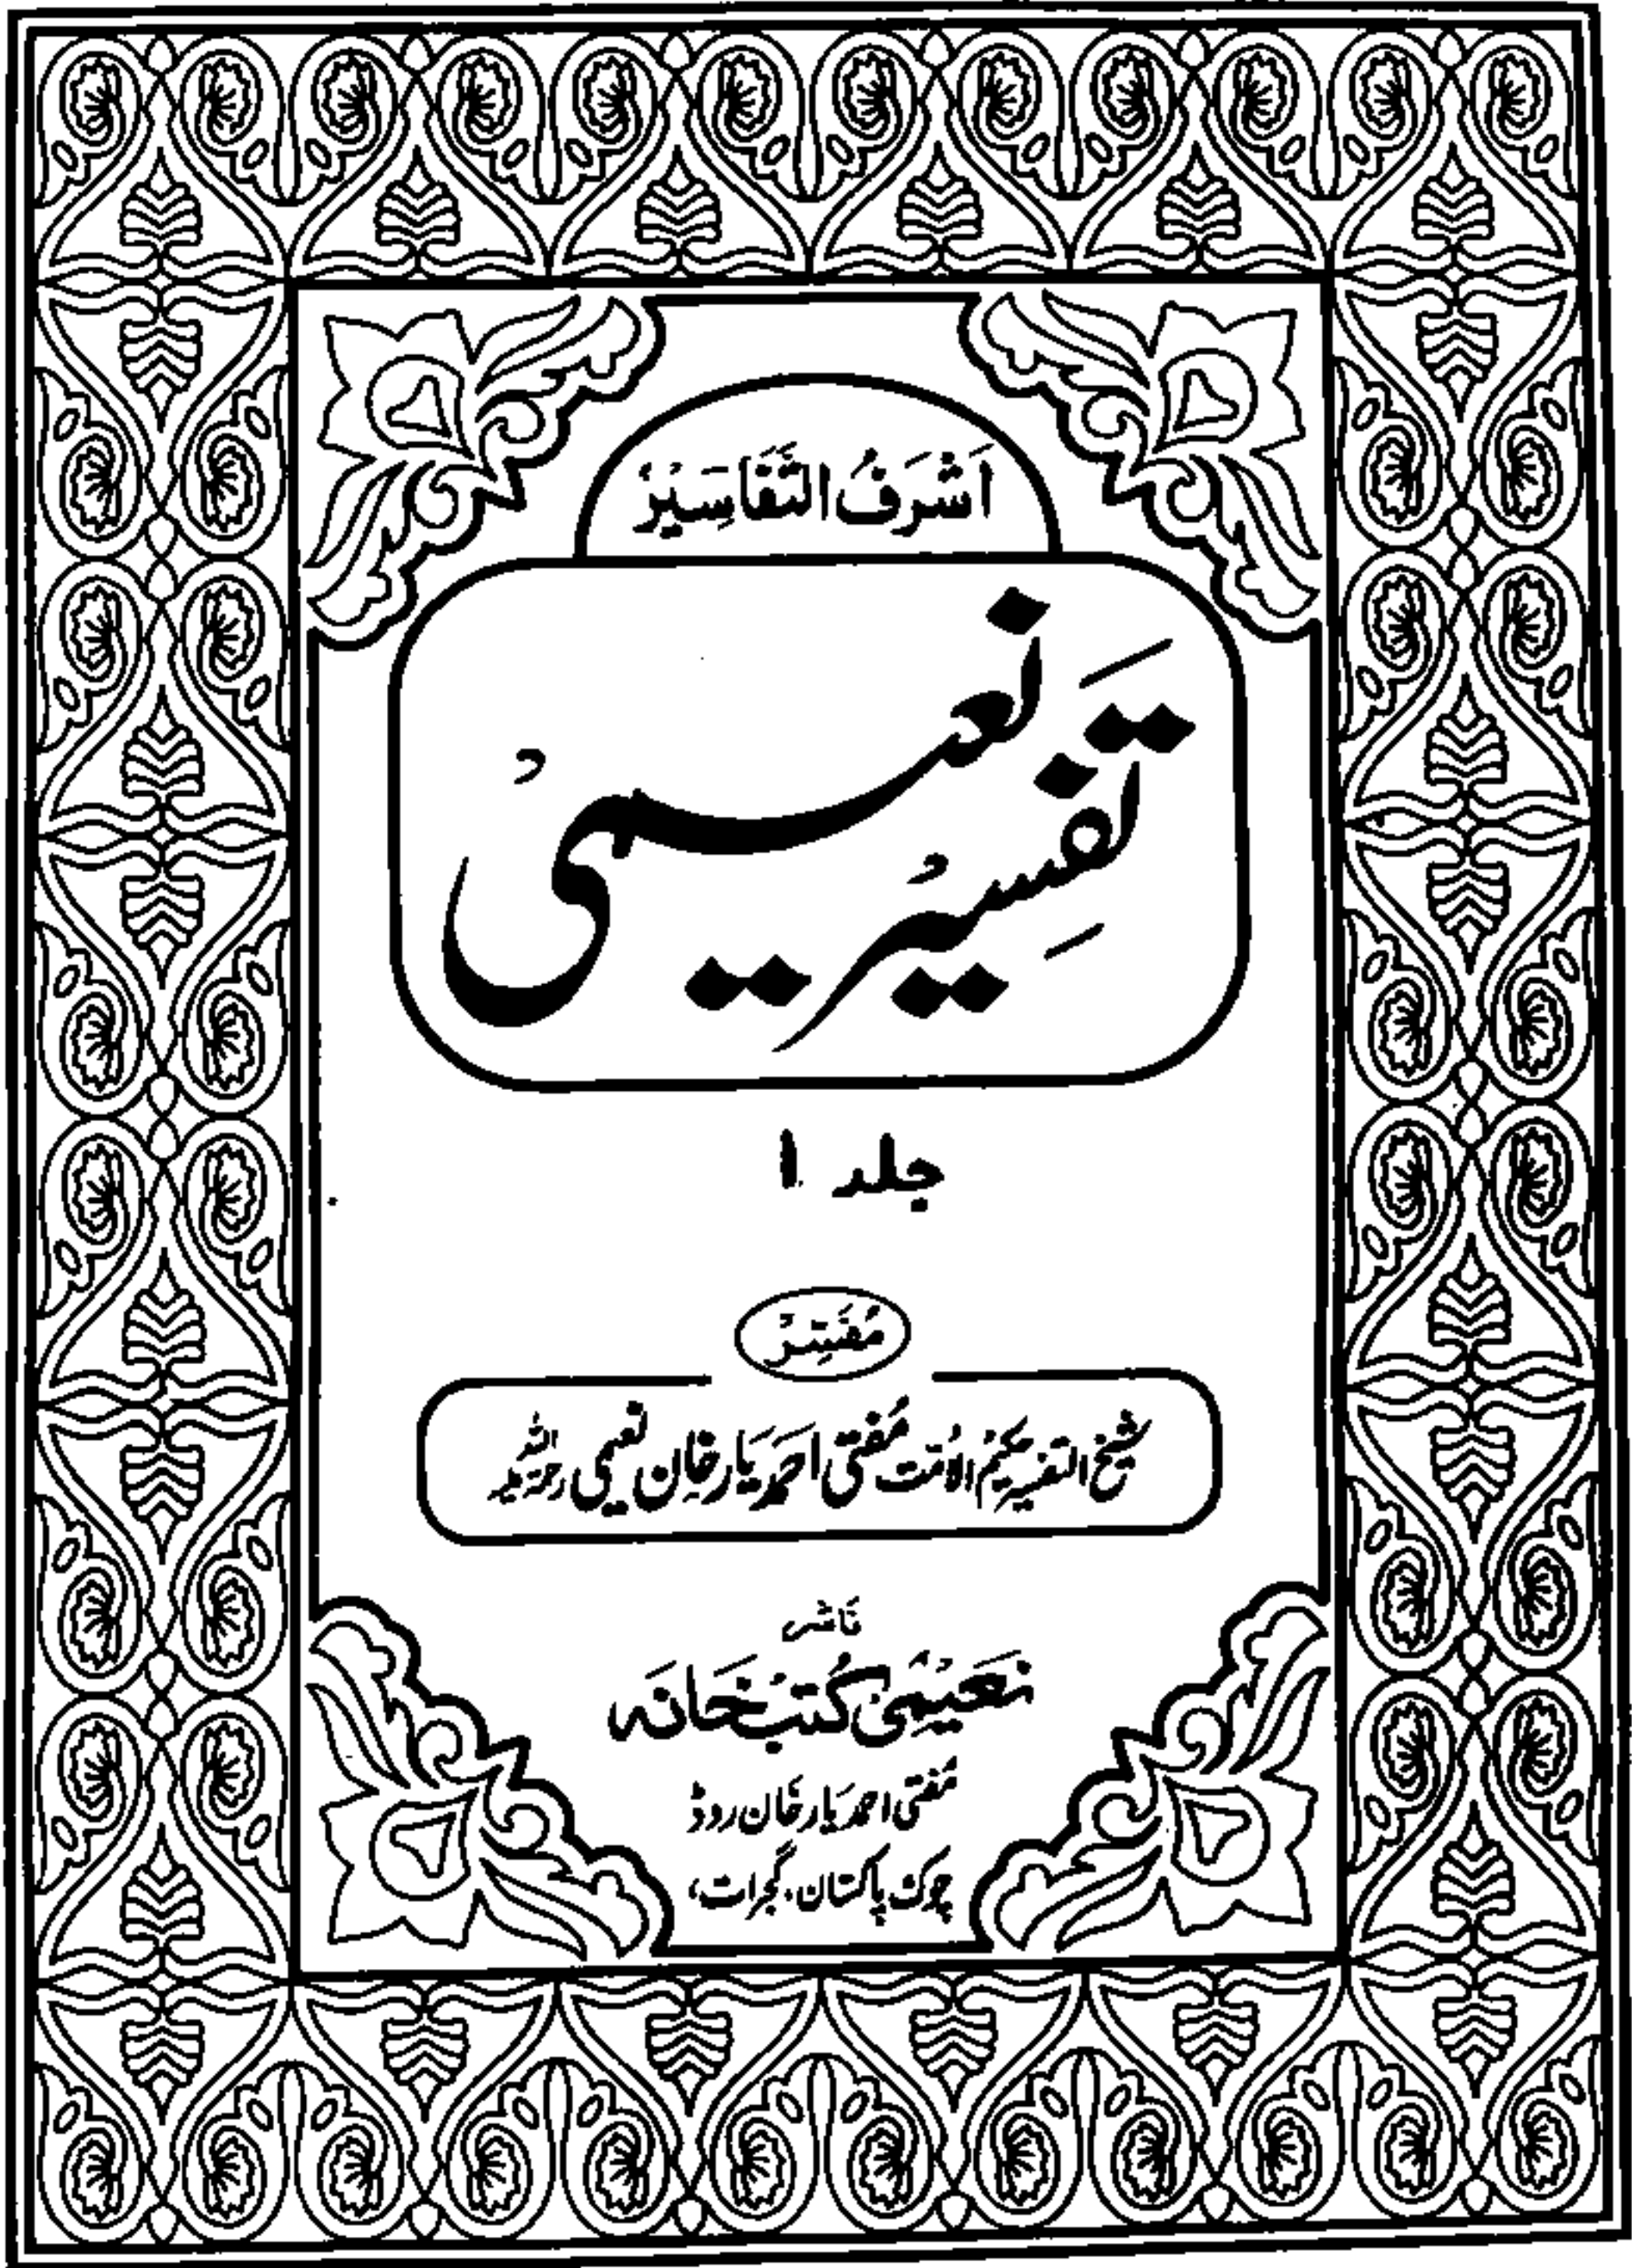 اَشْرَفُ التَّفَاسِيْرْ
تَفسِیْر نعیمیْ
جلد ۱
مُفَسِّرْ
شیخ التفسیر حکیمُ الاُمّت مُفتی احمَد یَار خان نعیمی رحمۃ اللہ علیہ
نَاشر
نَعَیْمِیْ کُتبْ خَانَہ
مُفتی احمد یَار خَان روڈ
چوک پاکستان، گجرات،